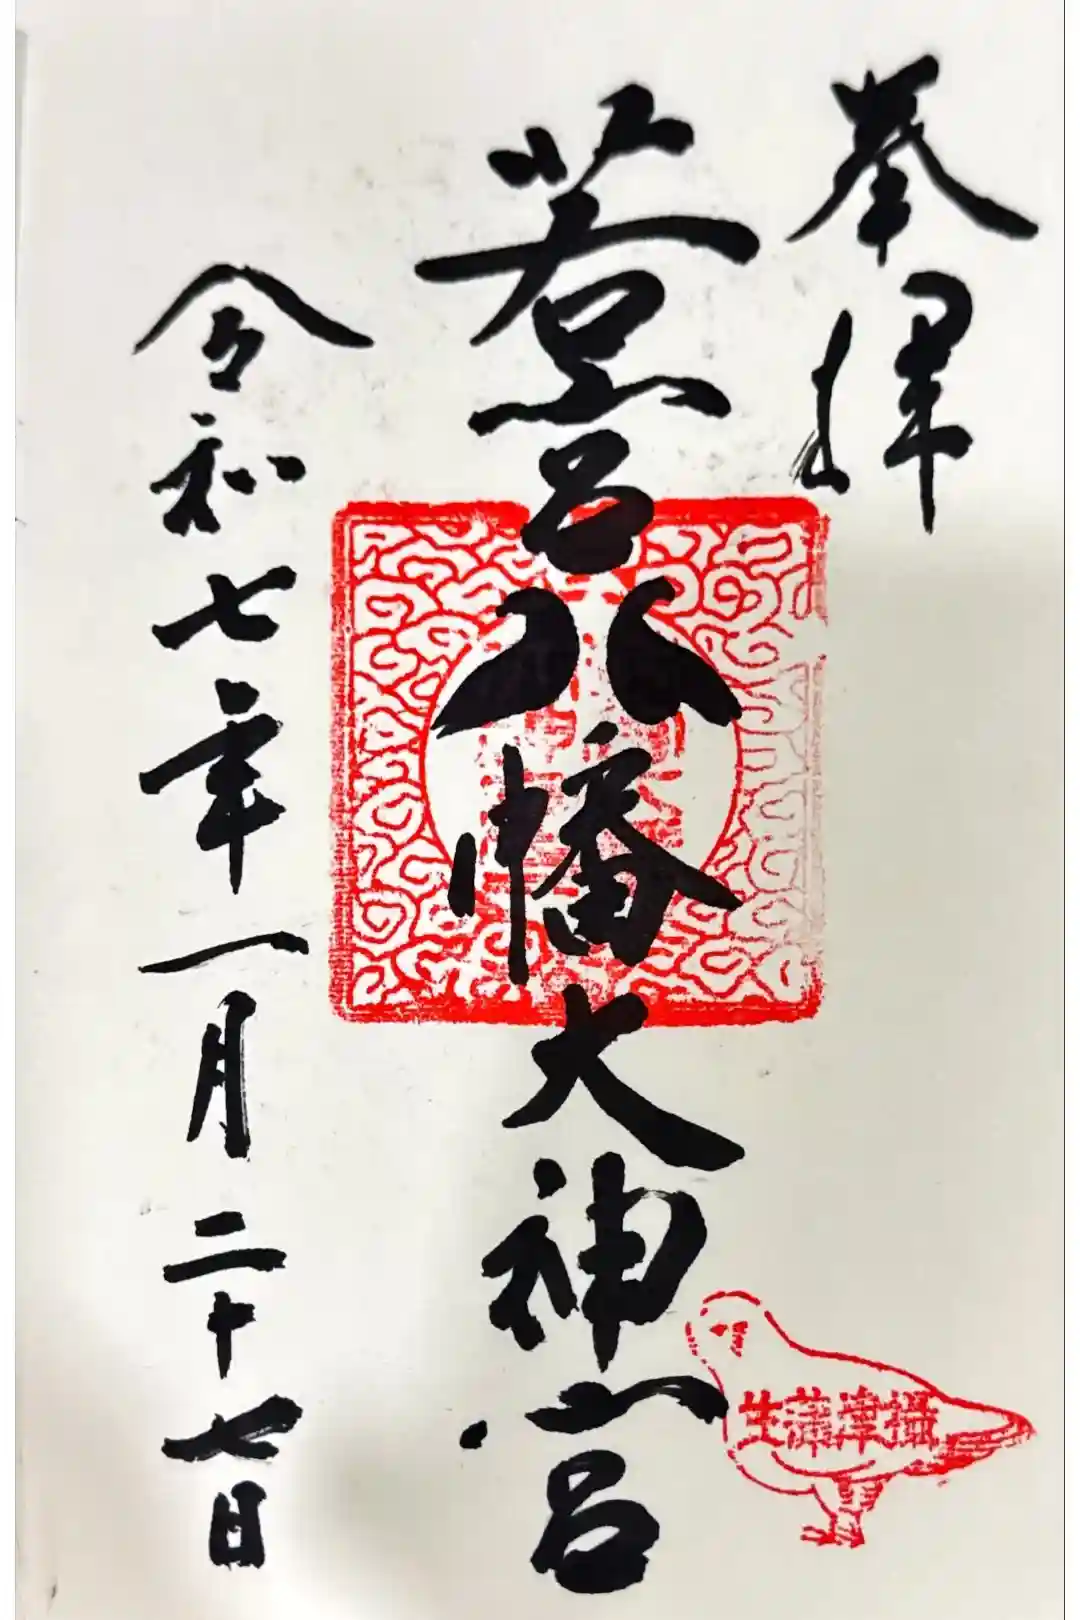 奉拝
若宮八幡大神宮
令和七年一月二十七日
攝津蒲生